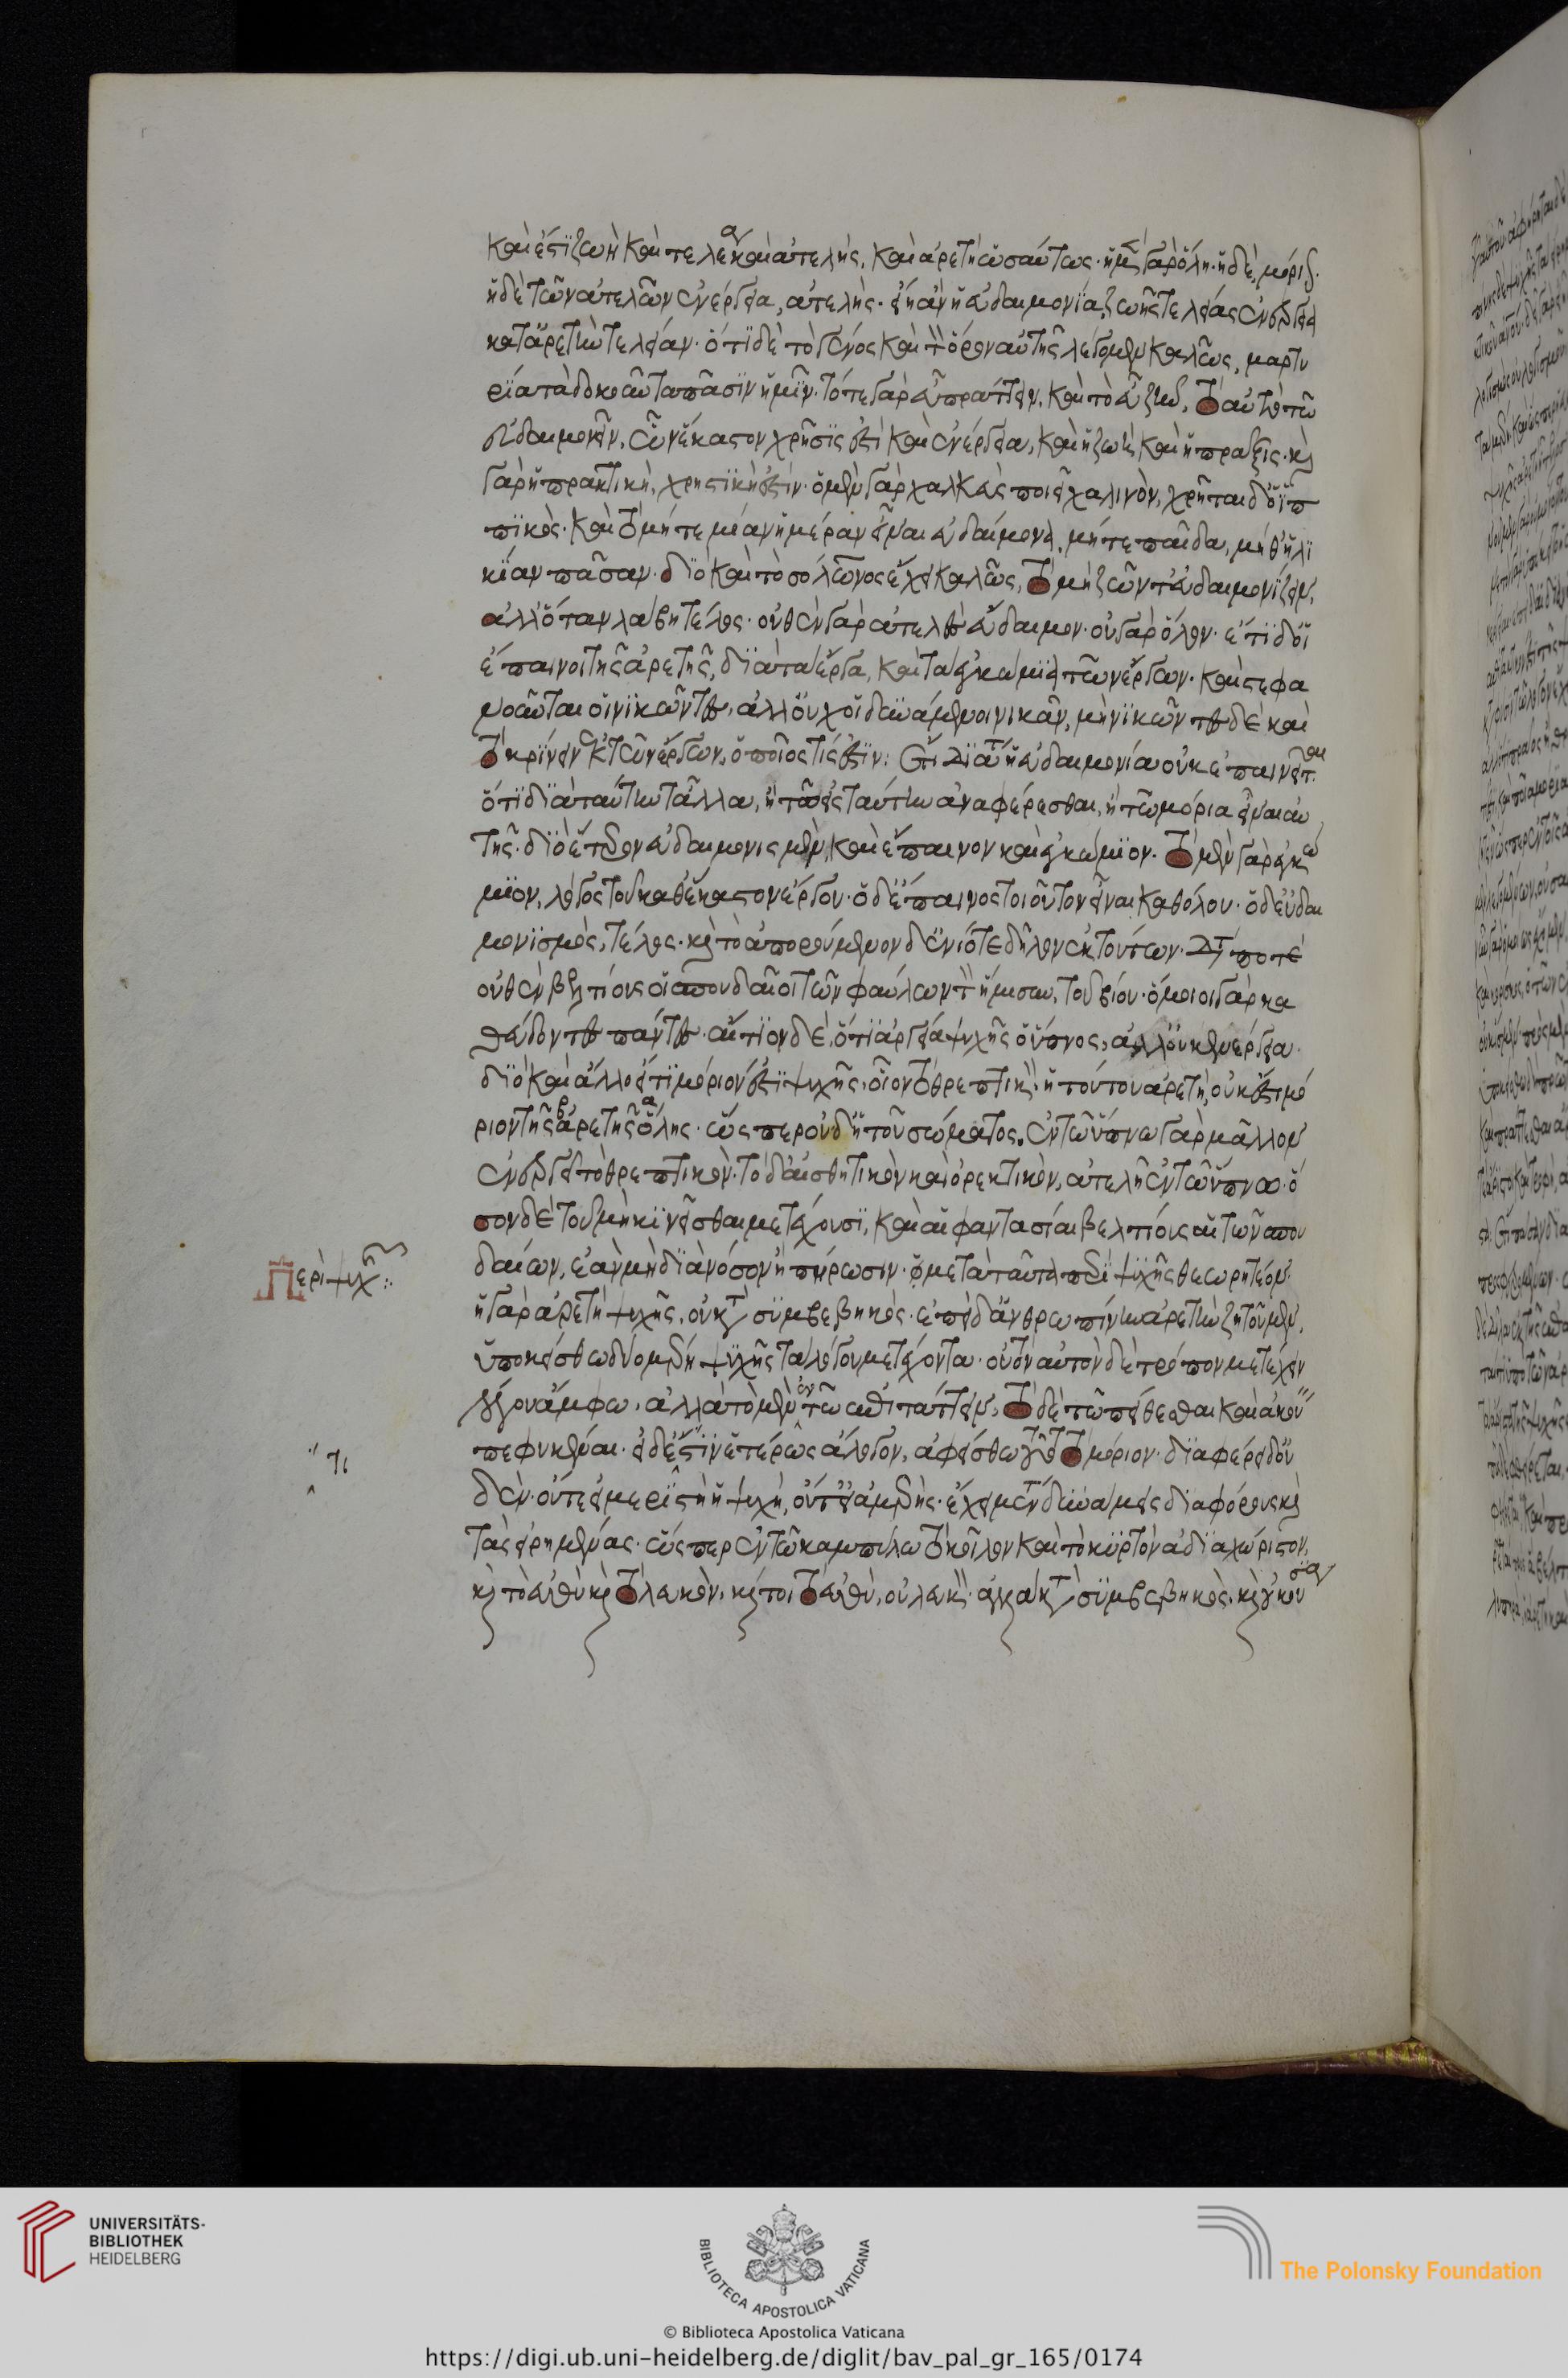 καὶ ἔστι ζωὴ καὶ τελέα καὶ ἀτελής, καὶ ἀρετὴ ὡσαύτως· ἡ μὲν γὰρ ὅλη· ἡ δὲ, μόριον·
ἡ δὲ τῶν ἀτελῶν ἐνέργεια, ἀτελής· εἴη ἂν ἡ εὐδαιμονία, ζωῆς τελείας ἐνέργεια
κατ' ἀρετὴν τελείαν· ὅτι δὲ τὸ γένος καὶ τὸν ὅρον αὐτῆς λέγομεν καλῶς, μαρτυ
ρία τὰ δοκοῦντα πᾶσιν ἡμῖν· τό τε γὰρ εὖ πράττειν, καὶ τὸ εὖ ζῆν, τὸ αὐτὸ τῶ
εὐδαιμονεῖν, ὧν ἕκαστον χρῆσίς ἐστι καὶ ἐνέργεια, καὶ ἡ ζωὴ καὶ ἡ πρᾶξις· καὶ
γὰρ ἡ πρακτικὴ, χρηστικὴ ἐστίν· ὁ μὲν γὰρ χαλκεὺς ποιεῖ χαλινὸν, χρῆται δ' ὁ ἱπ
πικός· καὶ τὸ μήτε μίαν ἡμέραν εἶναι εὐδαίμονα, μήτε παῖδα, μήθ' ἡλι
κίαν πᾶσαν· διὸ καὶ τὸ σόλωνος ἔχει καλῶς, τὸ μὴ ζῶντ' εὐδαιμονίζειν,
ἀλλ' ὅταν λάβη τέλος· οὐθὲν γὰρ ἀτελὲς εὔδαιμον· οὐ γὰρ ὅλον· ἔτι δ' οἱ
ἔπαινοι τῆς ἀρετῆς, διὰ τὰ ἔργα, καὶ τὰ ἐγκώμια τῶν ἔργων· καὶ στεφα
νοῦνται οἱ νικῶντες, ἀλλ' οὐχ οἱ δυνάμενοι νικᾶν, μὴ νικῶντες δὲ καὶ
τὸ κρίνειν ἐκ τῶν ἔργων, ὁποῖός τίς ἐστιν: ἔτι διὰ τί ἡ εὐδαιμονία οὐκ ἐπαινεῖται
ὅτι διὰ ταύτην τἆλλα, ἢ τῶ εἰς ταύτην ἀναφέρεσθαι, ἢ τῶ μόρια εἶναι αὐ
τῆς· διὸ ἕτερον εὐδαιμονισμὸν, καὶ ἔπαινον καὶ ἐγκώμιον· τὸ μὲν γὰρ ἐγκώ
μιον, λόγος τοῦ καθ' ἕκαστον ἔργου· ὁ δ' ἔπαινος τοιοῦτον εἶναι καθόλου· ὁ δ' εὐδαι
μονισμὸς, τέλος· καὶ τὸ ἀπορούμενον δ' ἐνίοτε δῆλον ἐκ τούτων· διὰ τί ποτὲ
οὐθὲν βελτίους οἱ σπουδαῖοι τῶν φαύλων τὸν ἥμισυ, τοῦ βίου· ὅμοιοι γὰρ κα
θεύδοντες πάντες· αἴτιον δὲ, ὅτι ἀργεία ψυχῆς ὁ ὕπνος, ἀλλ' οὐκ ἐνέργεια·
διὸ καὶ ἄλλο εἴ τι μόριόν ἐστι ψυχῆς, οἷον τὸ θρεπτικὸν· ἡ τούτου ἀρετὴ, οὐκ ἔστι μό
ριον τῆς ἀρετῆς ὅλης· ὥσπερ οὐδ' ἡ τοῦ σώματος, ἐν τῶ ὕπνω γὰρ μᾶλλον
ἐνεργεῖ τὸ θρεπτικόν· τὸ δ' αἰσθητικὸν καὶ ὀρεκτικὸν, ἀτελῆ ἐν τῶ ὕπνω· ὅ
σον δὲ τοῦ μὴ κινεῖσθαι μετέχουσι, καὶ αἱ φαντασίαι βελτίους αἱ τῶν σπου
δαίων, ἐὰν μὴ διὰ νόσον ἢ πήρωσιν· μετὰ ταῦτα περὶ ψυχῆς θεωρητέον·
ἡ γὰρ ἀρετὴ ψυχῆς, οὐ κατὰ συμβεβηκός· ἐπεὶ δ' ἀνθρωπίνην ἀρετὴν ζητοῦμεν,
ὑποκείσθω δύο μέρη ψυχῆς τὰ λόγου μετέχοντα· οὐ τὸν αὐτὸν δὲ τρόπον μετέχειν
λόγου ἄμφω, ἀλλὰ τὸ μὲν τῶ ἐπιτάττειν, τὸ δὲ τῶ πείθεσθαι καὶ ἀκούειν
πεφυκέναι· εἰ δέ τι ἐστὶν ἑτέρως ἄλογον, ἀφείσθω τοῦτο τὸ μόριον· διαφέρει δ' οὐ
δὲν· οὔτ' εἰ μεριστὴ ἡ ψυχή, οὔτ' εἰ ἀμερής· ἔχει μέντοι δυνάμεις διαφόρους καὶ
τὰς εἰρημένας· ὥσπερ ἐν τῶ καμπύλω τὸ κοῖλον καὶ τὸ κυρτὸν ἀδιαχώριστον,
καὶ τὸ εὐθὺ καὶ τὸ λευκόν· καίτοι τὸ εὐθὺ, οὐ λευκὸν· ἀλλὰ κατὰ συμβεβηκός, καὶ οὐκ οὐσία
Περὶ ψυχῆς:
τι
UNIVERSITÄTS-
BIBLIOTHEK
HEIDELBERG
BIBLIOTECA APOSTOLICA VATICANA
© Biblioteca Apostolica Vaticana
The Polonsky Foundation
https://digi.ub.uni-heidelberg.de/diglit/bav_pal_gr_165/0174